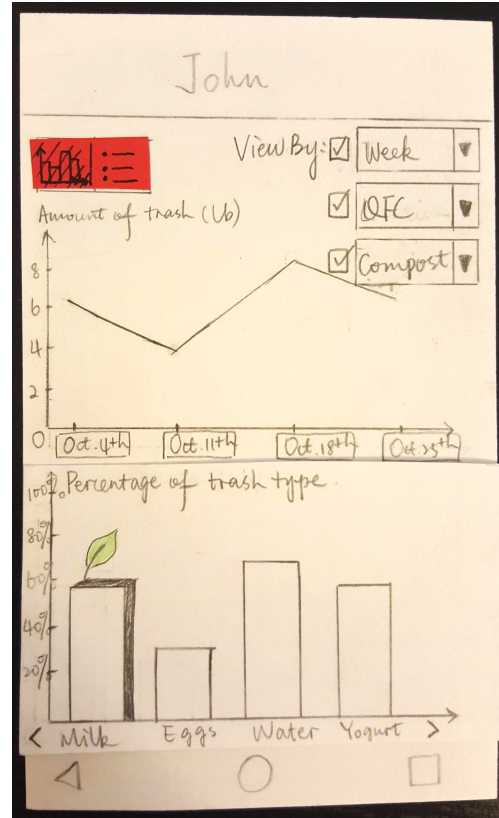 John
View By: Week
QFC
Compost
Amount of trash (Lb)
8
6
4
2
0
Oct. 4th Oct. 11th Oct. 18th Oct. 25th
100% Percentage of trash type.
80%
60%
40%
20%
< Milk Eggs Water Yogurt >